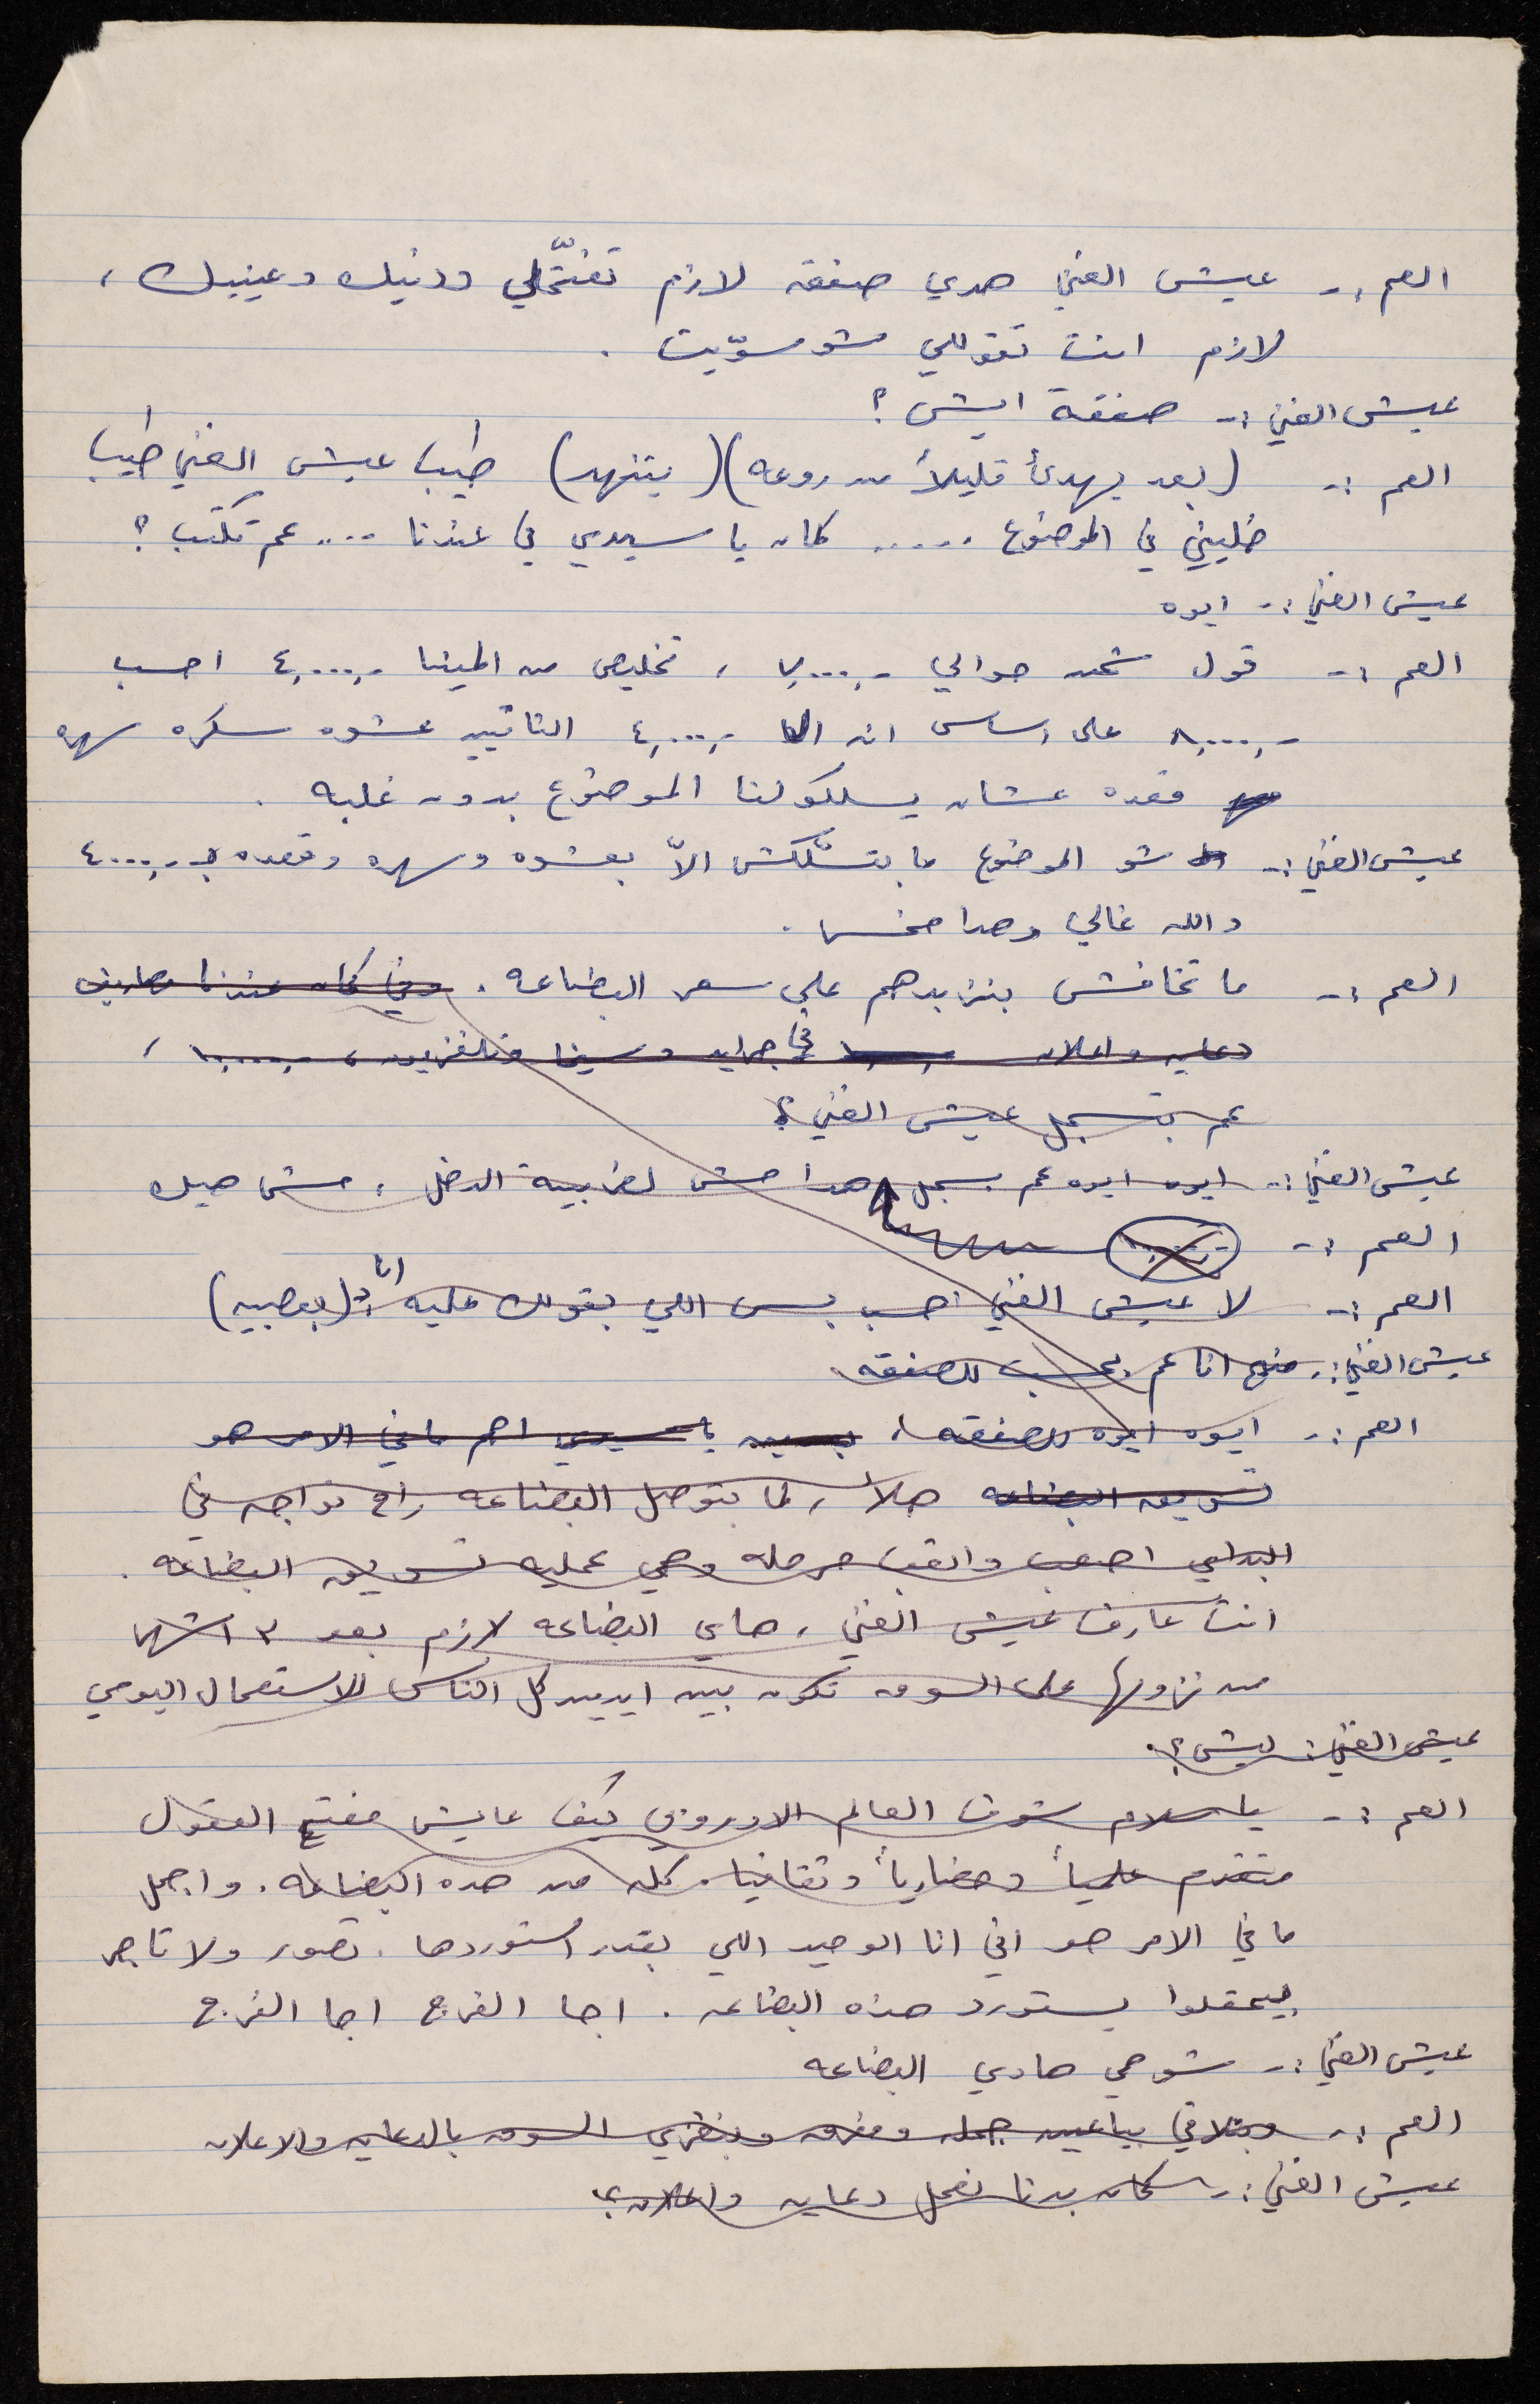 العم :- عيش الغني هدي صفقه لازم تفتّحلي ودنيك وعينيك ،
لازم انت تقوللي شو سوّيت .
عيش الغني :- صفقة ايش ؟
العم :- (بعد يهدئ قليلاً من روعه) (يتنهد) طيب عيش الغني طيب
خليني في الموضوع ..... كمان يا سيدي في عندنا .... عم تكتب ؟
عيش الغني :- ايوه
العم :- قول شحن حوالي -,٧٠٠٠ ، تخليص من المينا -,٤٠٠٠ احسب
-,٨٠٠٠ على اساس انه الـ -,٤٠٠٠ التانيين عشوه سكره سهره
قعده عشان يسلكولنا الموضوع بدون غلبه .
عيش الغني :- شو الموضوع ما بتسلّكش الاّ بعشوه وسهره وقعده بـ -,٤٠٠٠
والله غالي وهدا
العم :- ما تخافش بنزيدهم على سعر البضاعه . وفي كمان عندنا مصاريف
دعايه واعلان في جرايد وسينما وتلفزيون ،
عم بتسجل عيش الغني ؟
عيش الغني :- ايوه ايوه عم بسجل هدا مش لضريبة الدخل ، مش هيك
العم :-
العم :- لا عيش الغني احسب بس اللي بقولك عليه انا (بعصبيه)
عيش الغني :- منيح انا عم بحسب للصفقه
العم :- ايوه ايوه للصفقه ، يا سيدي اهم ما في الامر هو
تسويق البضاعه هلأ ، لما بتوصل البضاعه راح نواجه في
البداي اصعب واتعب مرحله وهي عمليه تسويق البضاعه .
انت عارف عيش الغني ، هاي البضاعه لازم بعد ٣ اشهر
من نزولها على السوق تكون بين ايدين كل الناس للاستعمال اليومي
عيش الغني : ليش ؟
العم :- يا سلام شوف العالم الاوروبي كيف عايش مفتح العقول
متقدم علمياً وحضارياً وثقافيا . كله من هده البضاعه . واجمل
ما في الامر هو اني انا الوحيد اللي بقدر أستوردها . تصور ولا تاجر
بيحقلوا يستورد هذه البضاعه . اجا الفرج اجا الفرج
عيش الغني :- شو هي هادي البضاعه
العم :- وبنلاقي بياعين جمله ومفرق وبنغزي السوق بالدعايه والاعلان
عيش الغني :- كمان بدنا نعمل دعايه واعلان ؟